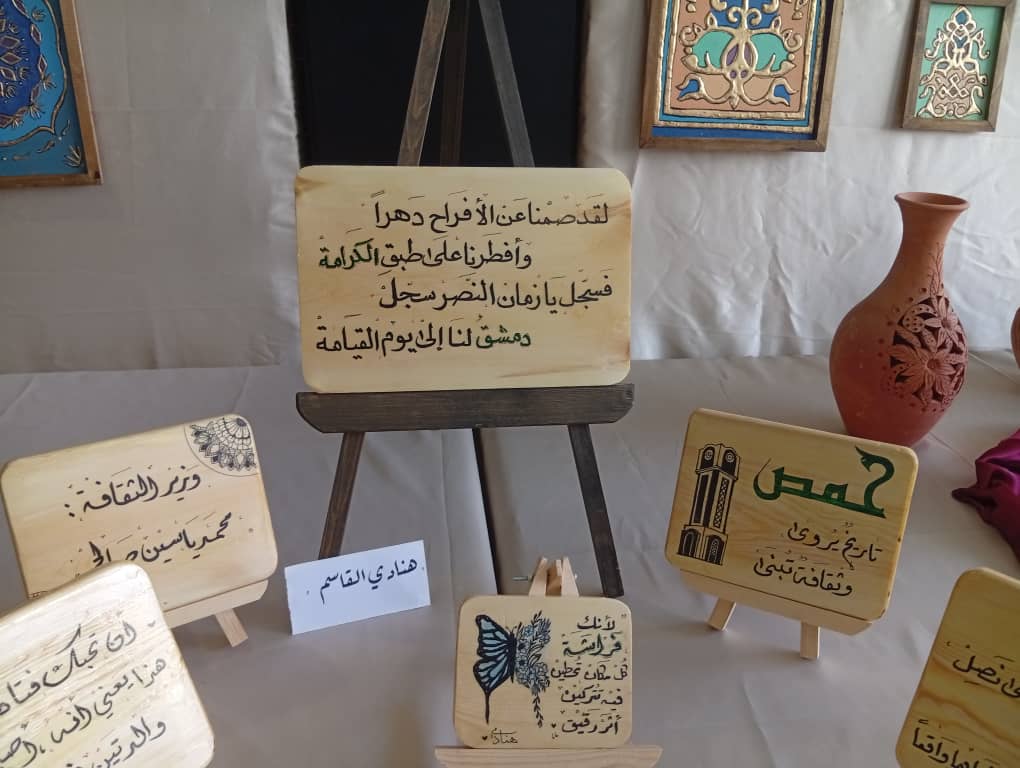 لقد صمنا عن الأفراح دهراً
وأفطرنا على طبق الكرامة
فسجل يا زمان النصر سجل
دمشق لنا إلى يوم القيامة
وزير الثقافة:
محمد ياسين صالح
هنادي القاسم
حمص
تاريخ يروى
وثقافة تبنى
لأنك
فراشة
كل مكان تحطين
فيه تتركين
أثر رقيق
هنادي
أن تحبك فتاة
هذا يعني أنه